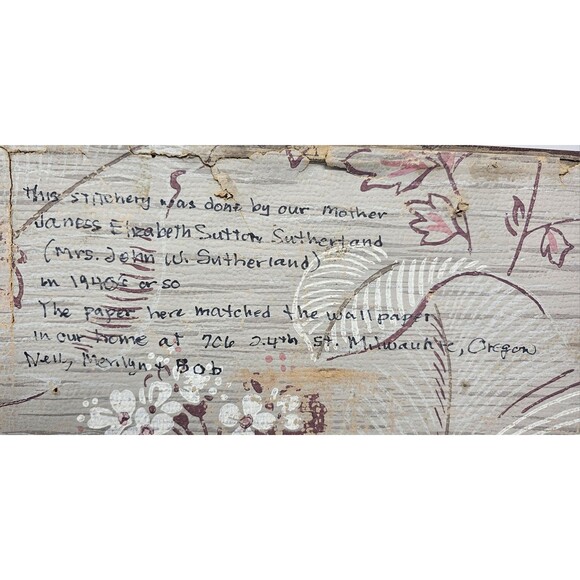 This stitchery was done by our mother
Janess Elizabeth Sutton Sutherland
(Mrs. John W. Sutherland)
in 1940s or so
The paper here matched the wallpaper
in our home at 706 24th St. Milwaukie, Oregon
Nell, Merilyn & Bob